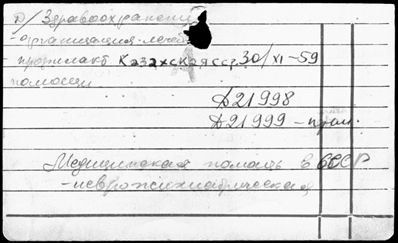 D/ Здравоохранени
- организация лечеб
- профилакт Казахская ССР 30/XI-59
помощи
Д21998
Д21999 - прил.
Медицинская помощь в СССР
- невропсихиатрическая